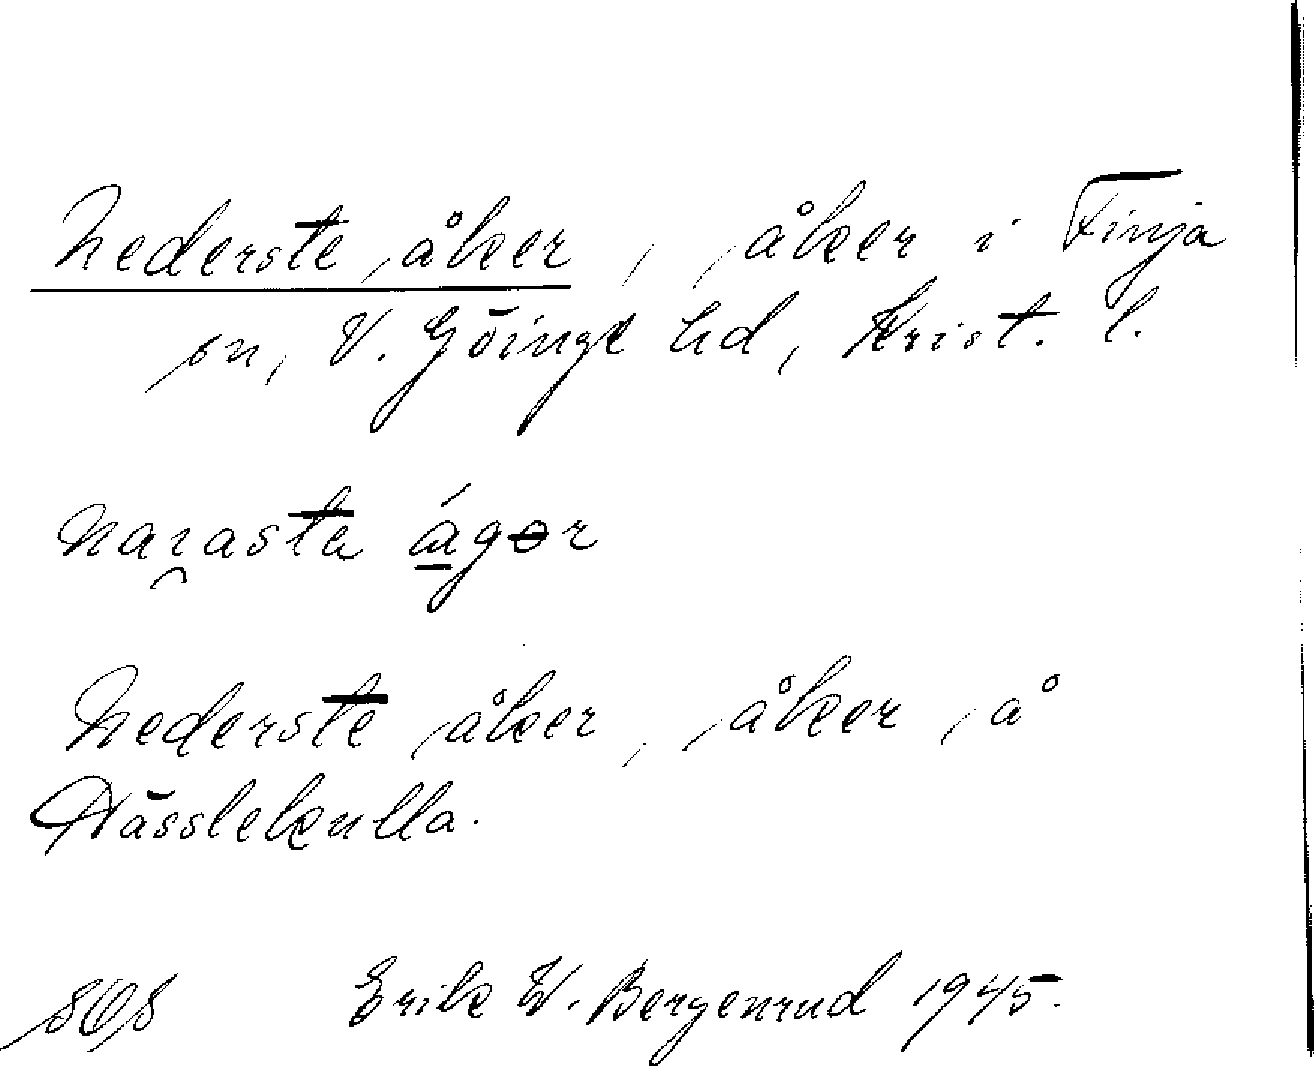 Nederste åker, åker i Finja
sn, V. Göinge hd, Krist. l.
narasta ágər
Nederste åker, åker å
Hässlekulla.
Erik W. Bergenrud 1945.